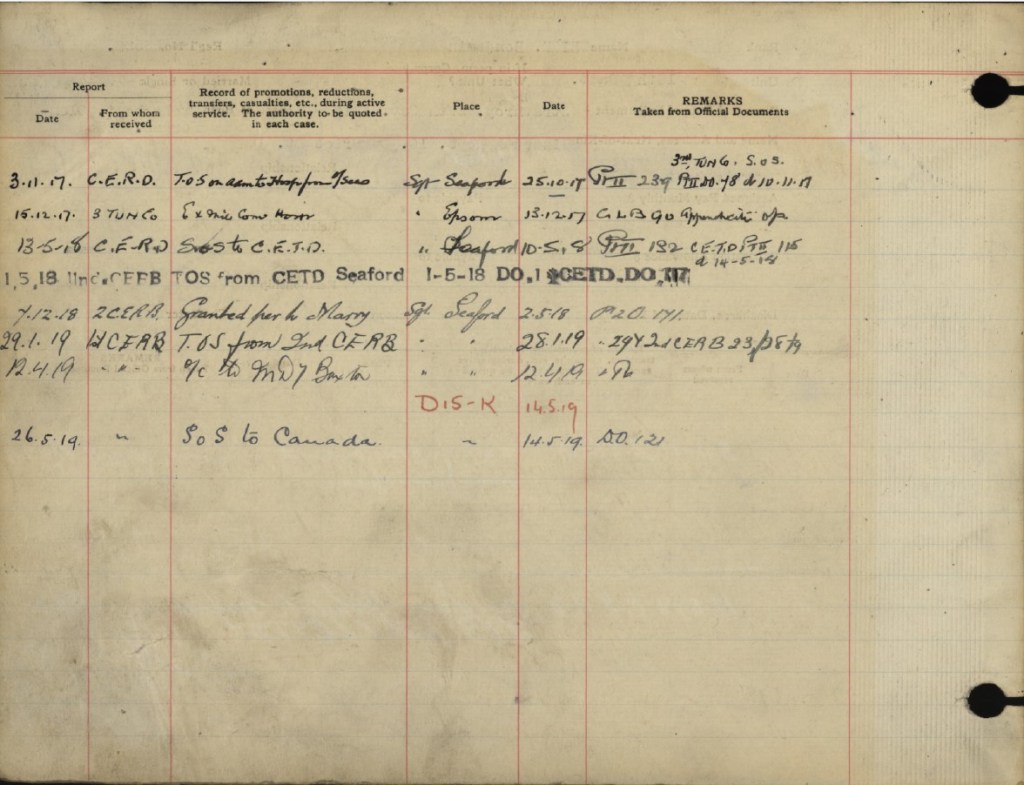 Report
Date
From whom
received
Record of promotions, reductions,
transfers, casualties, etc., during active
service. The authority to be quoted
in each case.
Place
Date
REMARKS
Taken from Official Documents
3rd Tun Co. S.O.S.
3.11.17. C.E.R.D. T.O.S on adm to Hosp from o/seas Sgt Seaford 25.10.17 Pt II 239 Pt II DO. 48 d 10.11.17
15.12.17. 3 TUN Co Ex Mil Conv Epsom 13.12.17 C L B 90 Appendicitis
13-5-18 C.E.R.D S.O.S to C.E.T.D. " Seaford 10-5-18 Pt II 132 C.E.T.D Pt II 115
d 14-5-18
1,5,18 TOS from CETD Seaford 1-5-18 DO,1 CETD.DO,117
7.12.18 2 CERB. Granted per to Marry Sgt Seaford 2.5.18 P2O. 171.
29.1.19 CERB T.O.S from 2nd CERB " " 28.1.19 2 CERB 23
12.4.19 - "- o/c to M D 7 Buxton " " 12.4.19
DIS-K 14.5.19
26.5.19. " S o S to Canada. " 14.5.19. D.O. 121